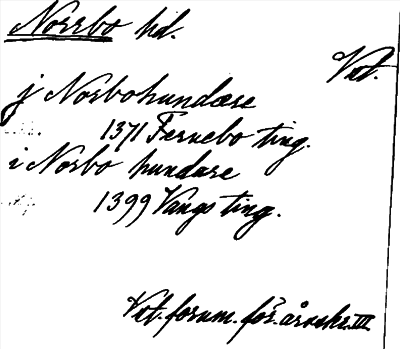 Norrbo hd.
Vst.
j Norbohundære
1371 Fernebo ting.
i Norbo hundare
1399 Vangs ting.
Vst. fornm. för. årsskr. III